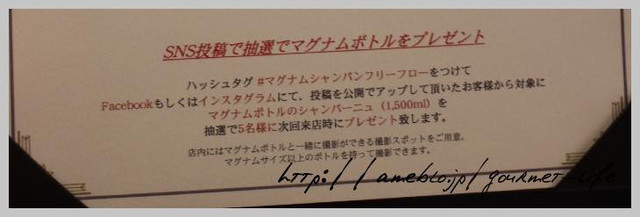 SNS投稿で抽選でマグナムボトルをプレゼント
ハッシュタグ #マグナムシャンパンフリーフローをつけて
Facebookもしくはインスタグラムにて、投稿を公開でアップして頂いたお客様から対象に
マグナムボトルのシャンパーニュ（1,500ml）を
抽選で5名様に次回来店時にプレゼント致します。
店内にはマグナムボトルと一緒に撮影ができる撮影スポットをご用意。
マグナムサイズ以上のボトルを持って撮影できます。
http://ameblo.jp/gourmet-life